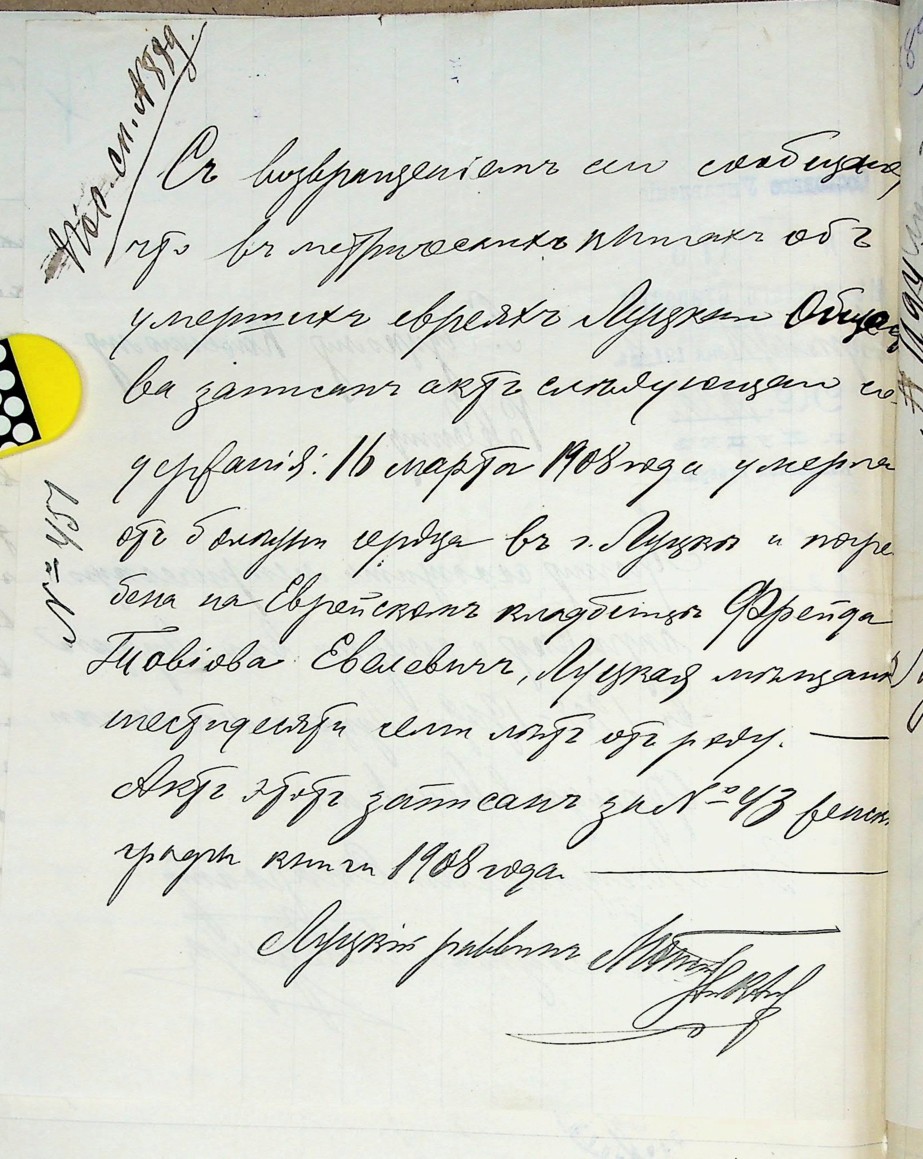 Пос. сп. № 899.
Съ возвращеніемъ сего сообщаю,
что въ метрическихъ книгахъ объ
умершихъ евреяхъ Луцкаго Общес
ва записанъ актъ слѣдующаго со-
держанія: 16 марта 1908 года умерла
отъ болѣзни сердца въ г. Луцкѣ и погре
бена на Еврейскомъ кладбищѣ Фрейда
Товіова Евелевичъ, Луцкая мѣщанк
шестидесяти семи лѣтъ отъ роду.
Актъ этотъ записанъ за № 43 женск.
графы книги 1908 года.
Луцкій раввинъ
№ 451